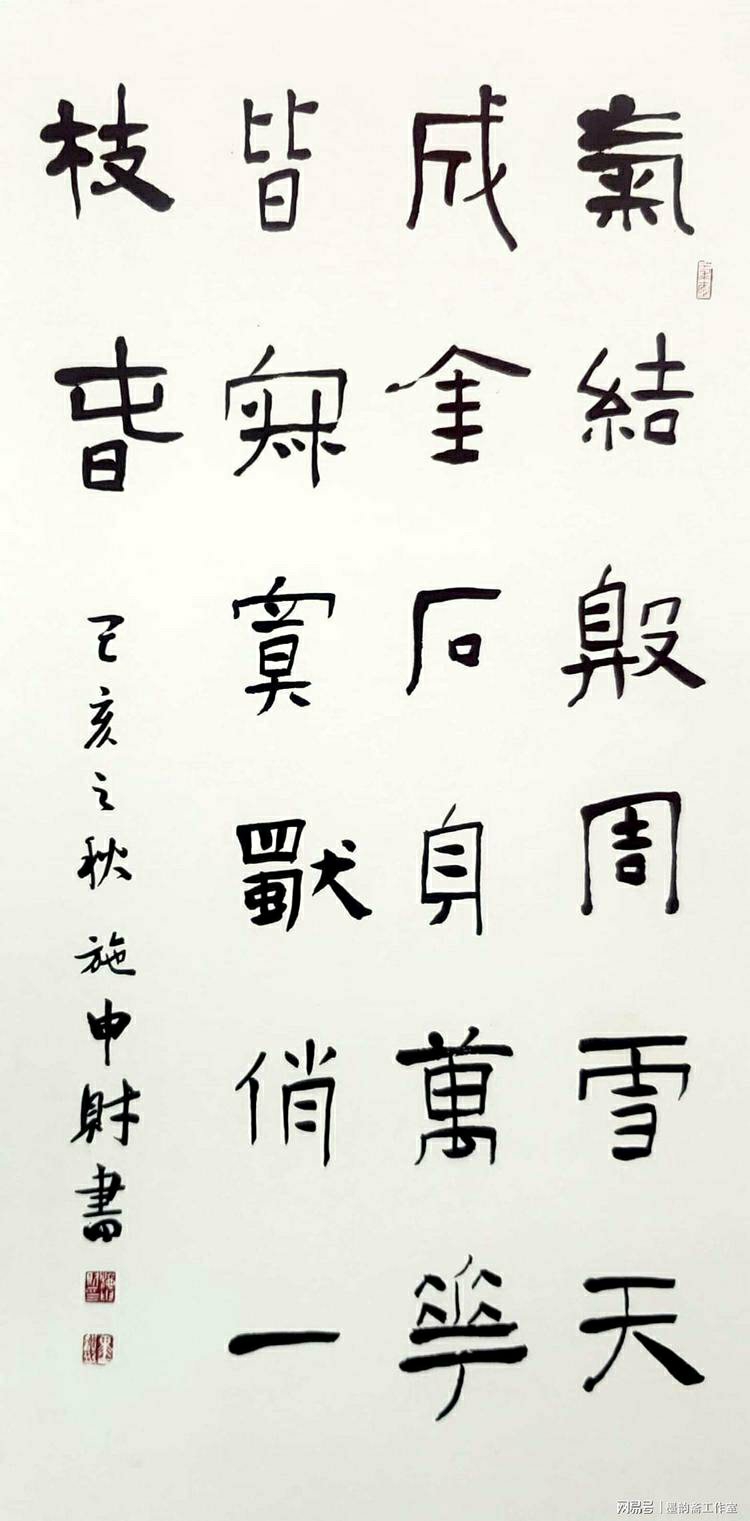 氣結殷周雪天
成金石身萬華
皆寂寞獨俏一
枝春
己亥之秋施申財書
网易号 | 墨韵斋工作室